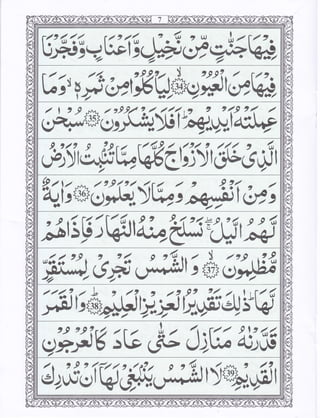 7
فِيْهَا جَنّٰتٍ مِّنْ نَّخِيْلٍ وَّاَعْنَابٍ وَّفَجَّرْنَا
فِيْهَا مِنَ الْعُيُوْنِ ۙ34 لِيَاْكُلُوْا مِنْ ثَمَرِهٖ ۙ وَمَا
عَمِلَتْهُ اَيْدِيْهِمْ ؕ اَفَلَا يَشْكُرُوْنَ 35 سُبْحٰنَ
الَّذِىْ خَلَقَ الْاَزْوَاجَ كُلَّهَا مِمَّا تُنْۢبِتُ الْاَرْضُ
وَمِنْ اَنْفُسِهِمْ وَمِمَّا لَا يَعْلَمُوْنَ 36 وَاٰيَةٌ
لَّهُمُ الَّيْلُ ۖۚ نَسْلَخُ مِنْهُ النَّهَارَ فَاِذَا هُمْ
مُّظْلِمُوْنَ ۙ37 وَالشَّمْسُ تَجْرِىْ لِمُسْتَقَرٍّ
لَّهَا ؕ ذٰلِكَ تَقْدِيْرُ الْعَزِيْزِ الْعَلِيْمِ ؕ38 وَالْقَمَرَ
قَدَّرْنٰهُ مَنَازِلَ حَتّٰى عَادَ كَالْعُرْجُوْنِ
الْقَدِيْمِ 39 لَا الشَّمْسُ يَنْۢبَغِىْ لَهَاۤ اَنْ تُدْرِكَ